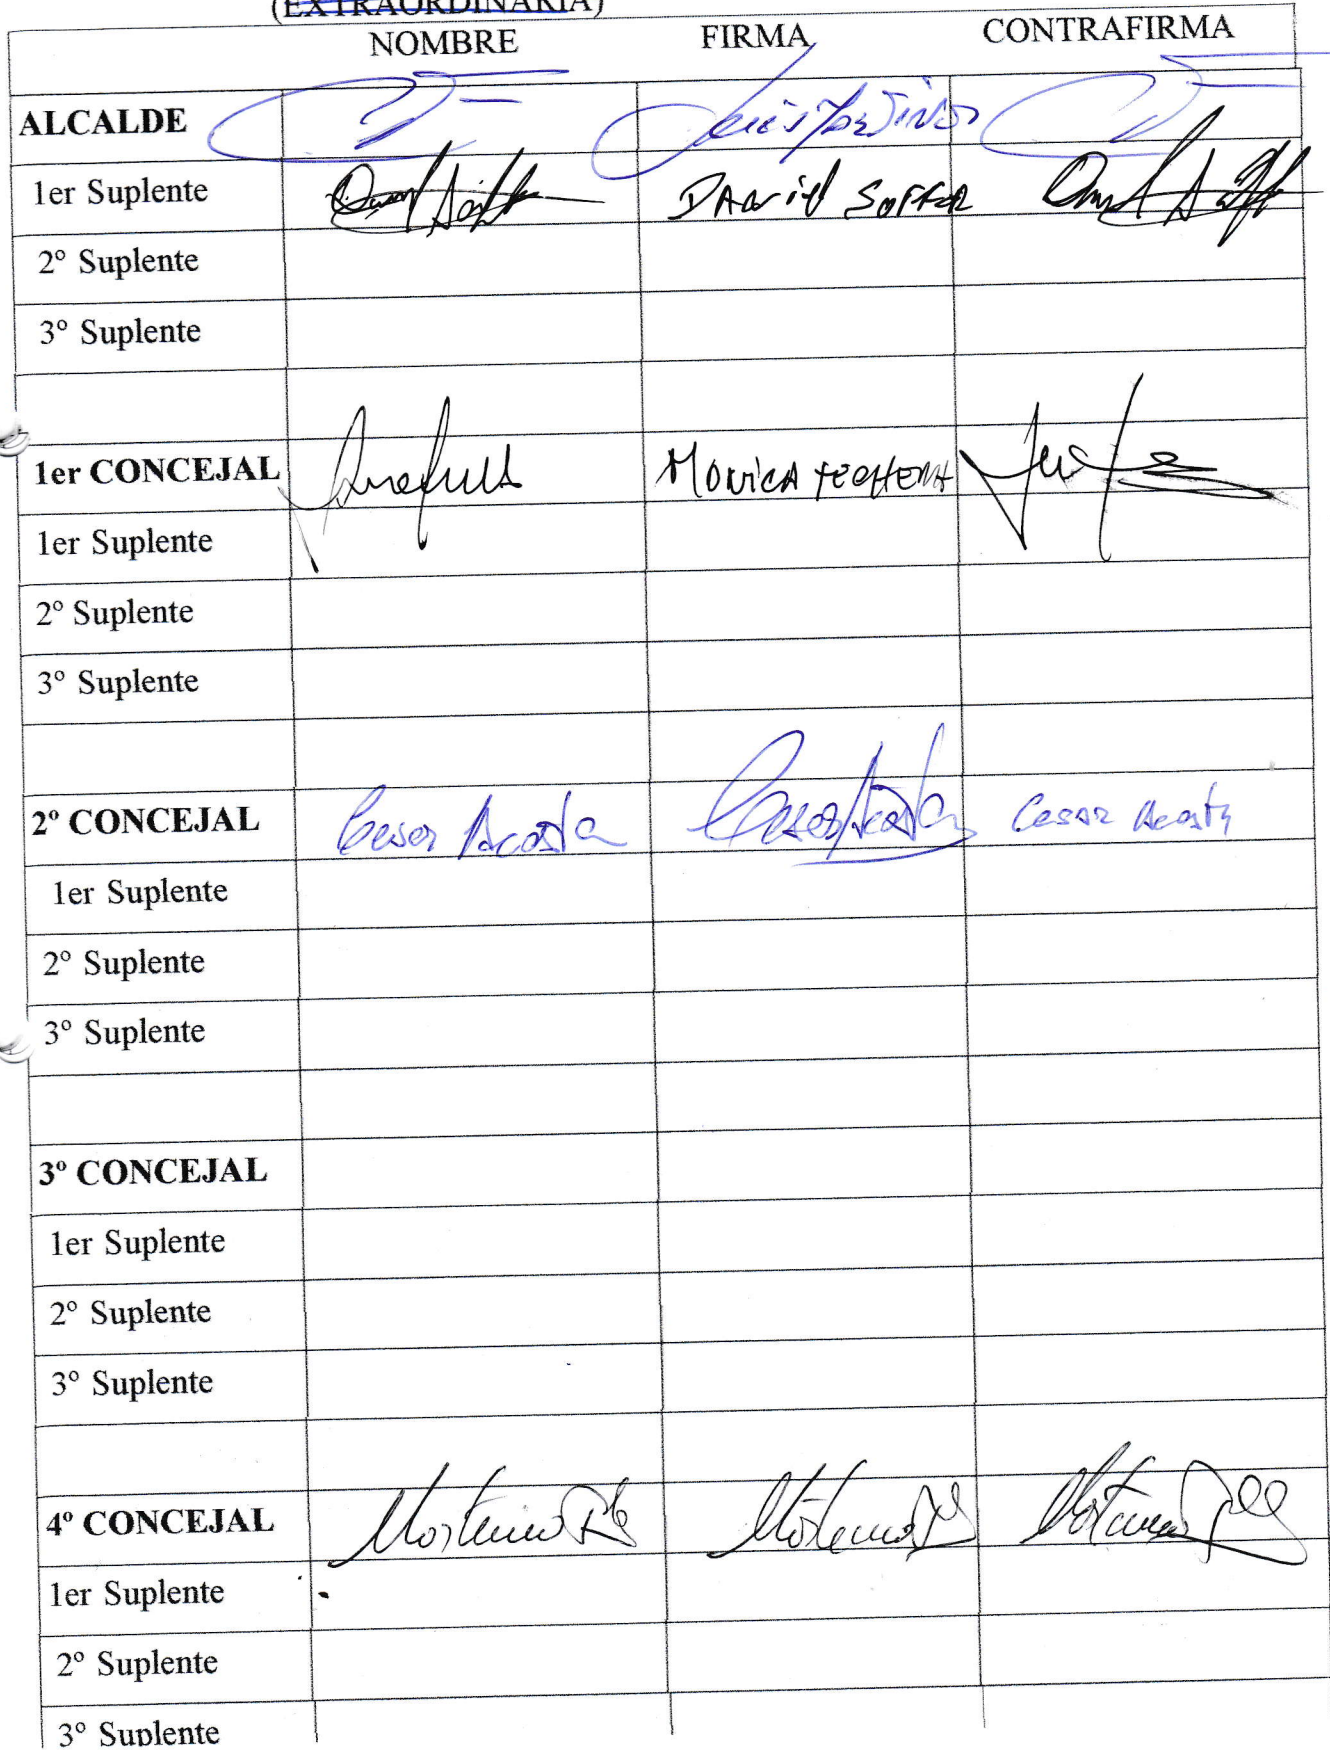 (EXTRAORDINARIA)
NOMBRE FIRMA CONTRAFIRMA
ALCALDE
1er Suplente DANIEL SOFFER
2º Suplente
3º Suplente
1er CONCEJAL MONICA TECHERA
1er Suplente
2º Suplente
3º Suplente
2º CONCEJAL Cesar Acosta Cesar Acosta Cesar Acosta
1er Suplente
2º Suplente
3º Suplente
3º CONCEJAL
1er Suplente
2º Suplente
3º Suplente
4º CONCEJAL
1er Suplente
2º Suplente
3º Suplente